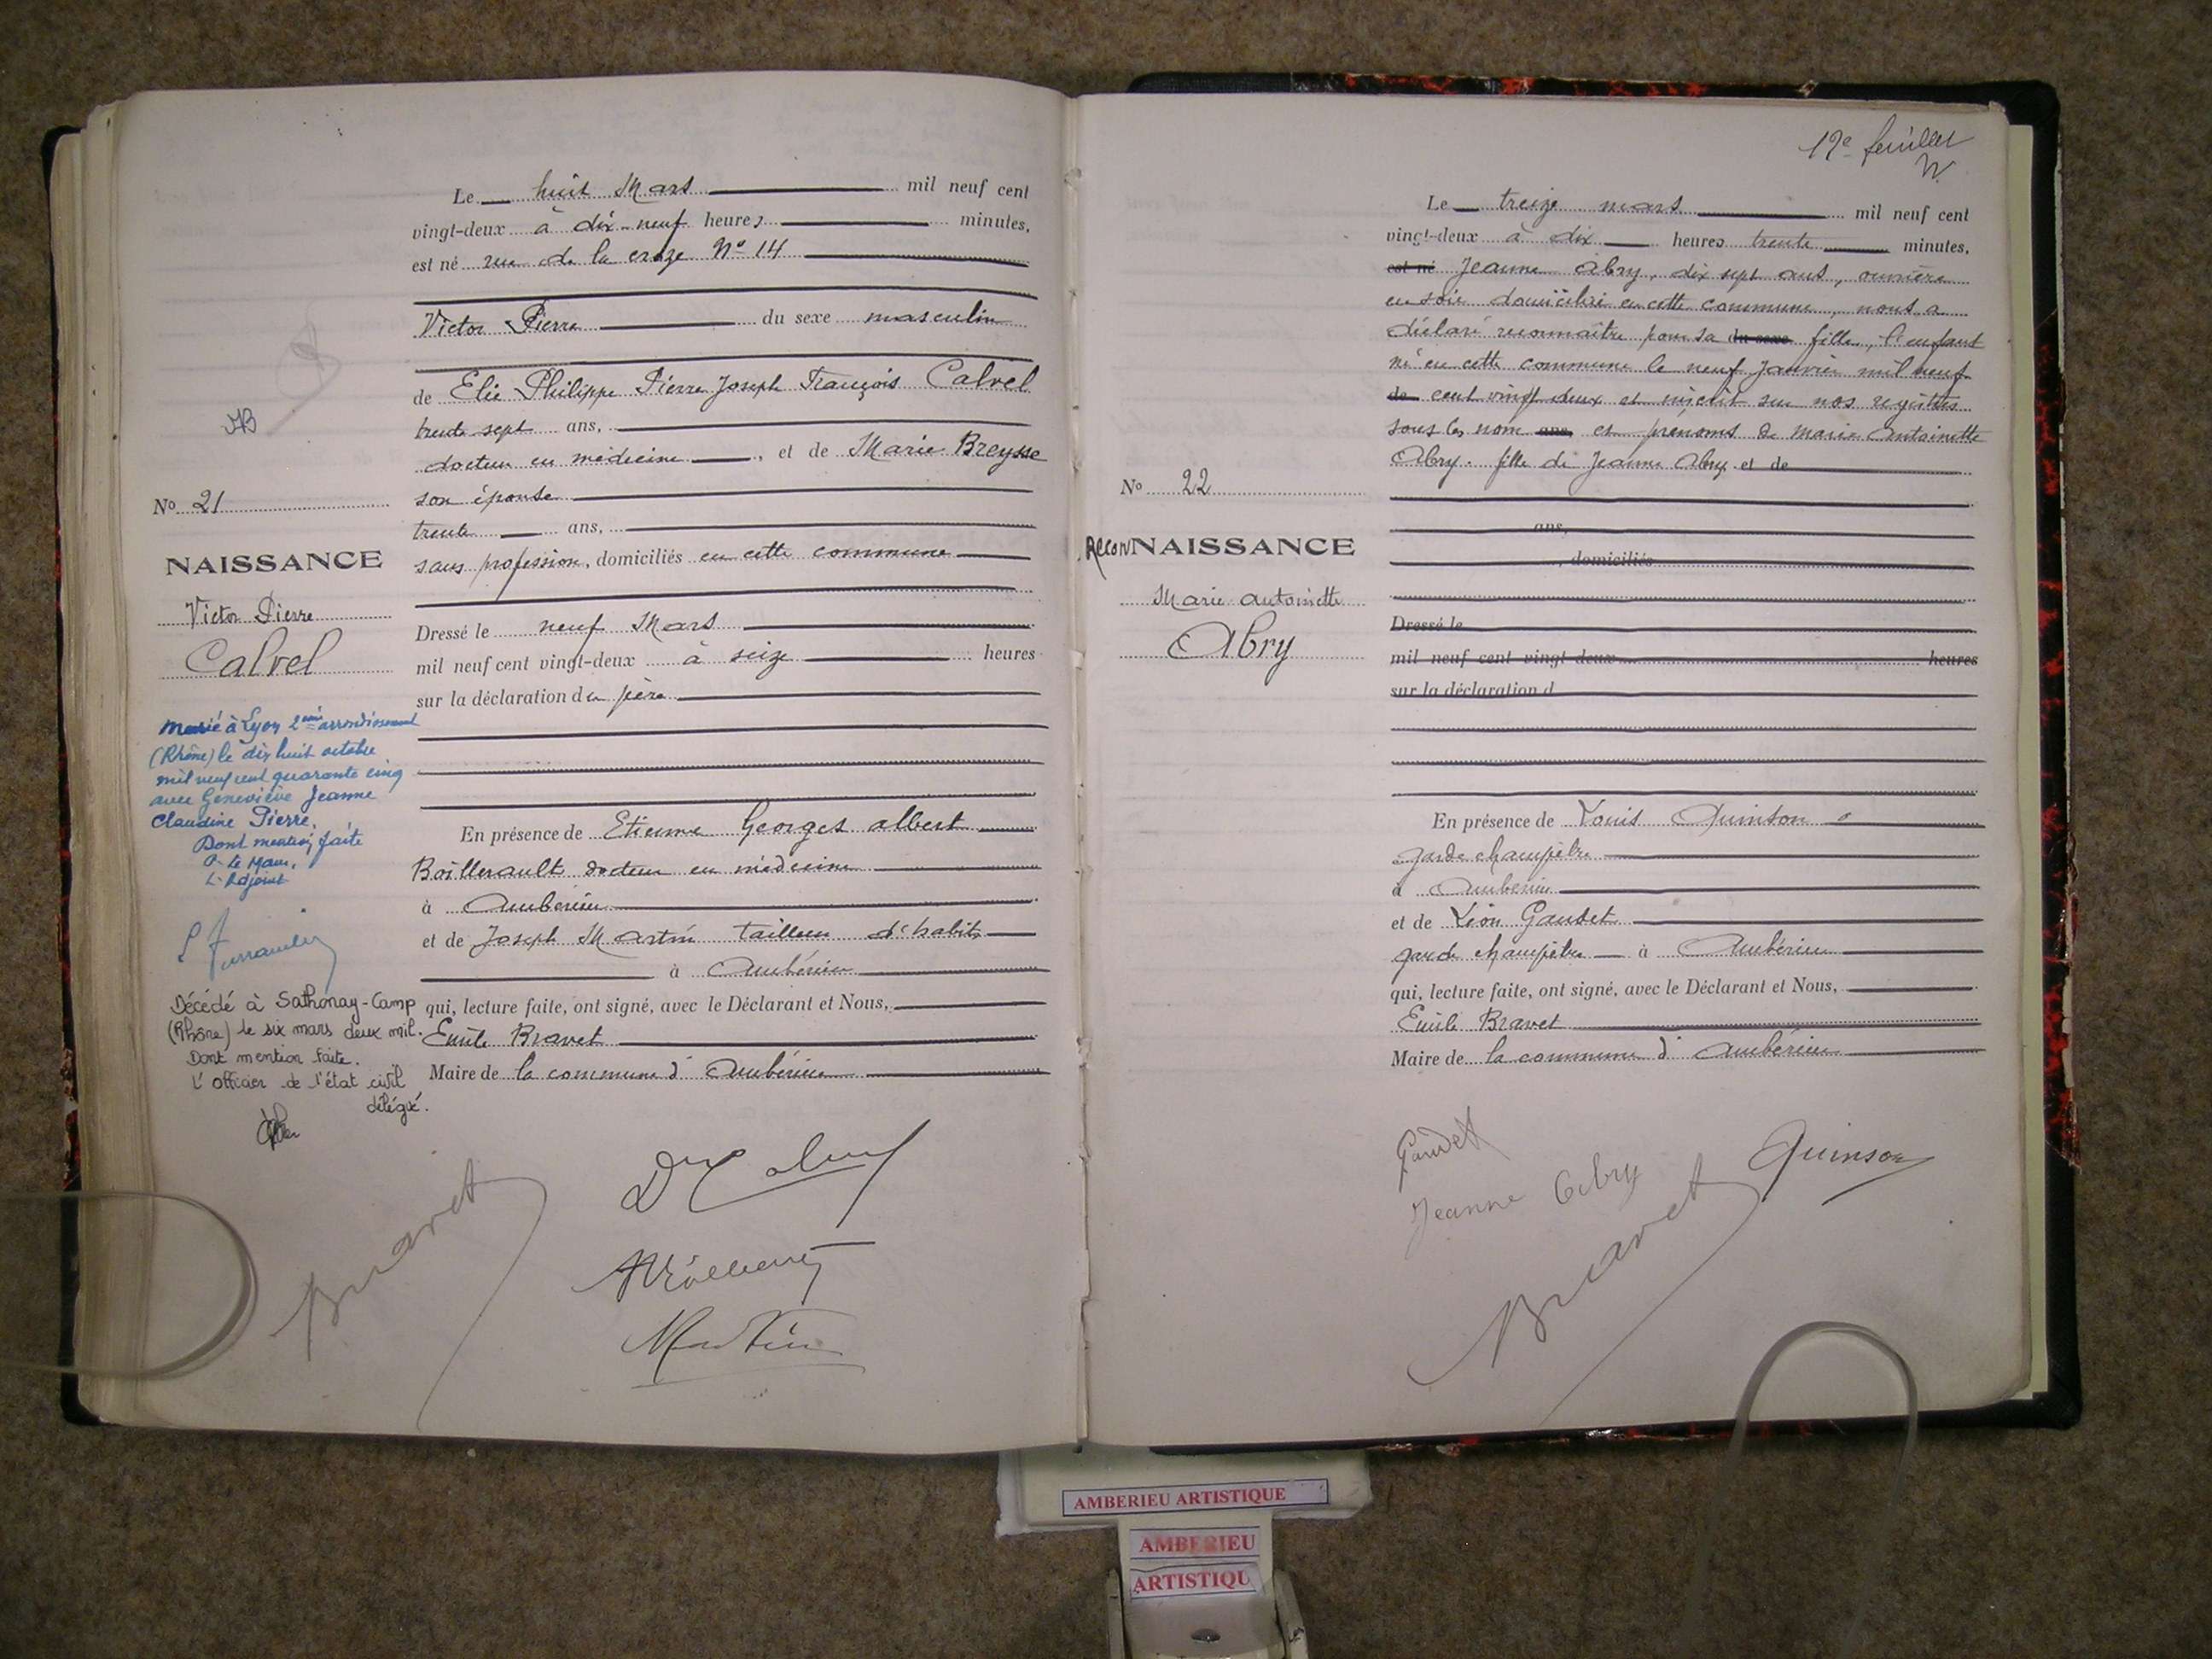 Le huit Mars mil neuf cent
vingt-deux à dix-neuf heures minutes,
est né rue de la craze No 14
Victor Pierre du sexe masculin
de Elie Philippe Pierre Joseph François Calvel
trente sept ans,
docteur en médecine, et de Marie Breysse
son épouse
trente ans,
sans profession, domiciliés en cette commune
Dressé le neuf Mars
mil neuf cent vingt-deux à seize heures
sur la déclaration du père
En présence de Etienne Georges albert
Boillerault docteur en médecine
à Ambérieu
et de Joseph Martin tailleur d'habits
à Ambérieu
qui, lecture faite, ont signé, avec le Déclarant et Nous,
Emile Bravet
Maire de la commune d'Ambérieu
No 21
NAISSANCE
Victor Pierre
Calvel
marié à Lyon 2eme arrondissement
(Rhône) le dix huit octobre
mil neuf cent quarante cinq
avec Geneviève Jeanne
Claudine Pierre.
Dont mention faite
P. Le Maire,
L'Adjoint
Décédé à Sathonay-Camp
(Rhône) le six mars deux mil.
Dont mention faite.
L'officier de l'état civil
délégué.
Bravet
Martin
12e feuillet
Le treize mars mil neuf cent
vingt-deux à dix heures trente minutes,
est né Jeanne Abry, dix sept ans, ouvrière
en soie domiciliée en cette commune, nous a
déclaré reconnaître pour sa du sexe fille, l'enfant
né en cette commune le neuf Janvier mil neuf
de cent vingt deux et inscrit sur nos registres
sous les nom ans, et prénoms de Marie Antoinette
Abry. fille de Jeanne Abry et de
ans,
, domiciliés
Dressé le
mil neuf cent vingt-deux heures
sur la déclaration d
En présence de Louis Quinson
garde champêtre
à Ambérieu
et de Léon Gaudet
garde champêtre à Ambérieu
qui, lecture faite, ont signé, avec le Déclarant et Nous,
Emile Bravet
Maire de la commune d'Ambérieu
No 22
ReconNAISSANCE
Marie antoinette
Abry
Gaudet
Jeanne Abry
Quinson
Bravet
AMBERIEU ARTISTIQUE
AMBERIEU
ARTISTIQU